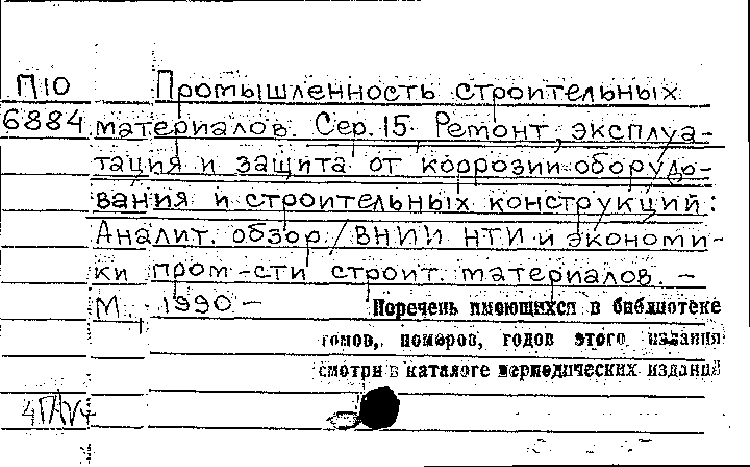 П10 Промышленность строительных
6884 материалов. Сер. 15. Ремонт, эксплуа-
тация и защита от коррозии оборудо-
вания и строительных конструкций:
Аналит. обзор / ВНИИ НТИ и экономи-
ки пром-сти строит. материалов. –
М., 1990 –
Перечень имеющихся в библиотеке
томов, номеров, годов этого издания
смотри в каталоге периодических изданий